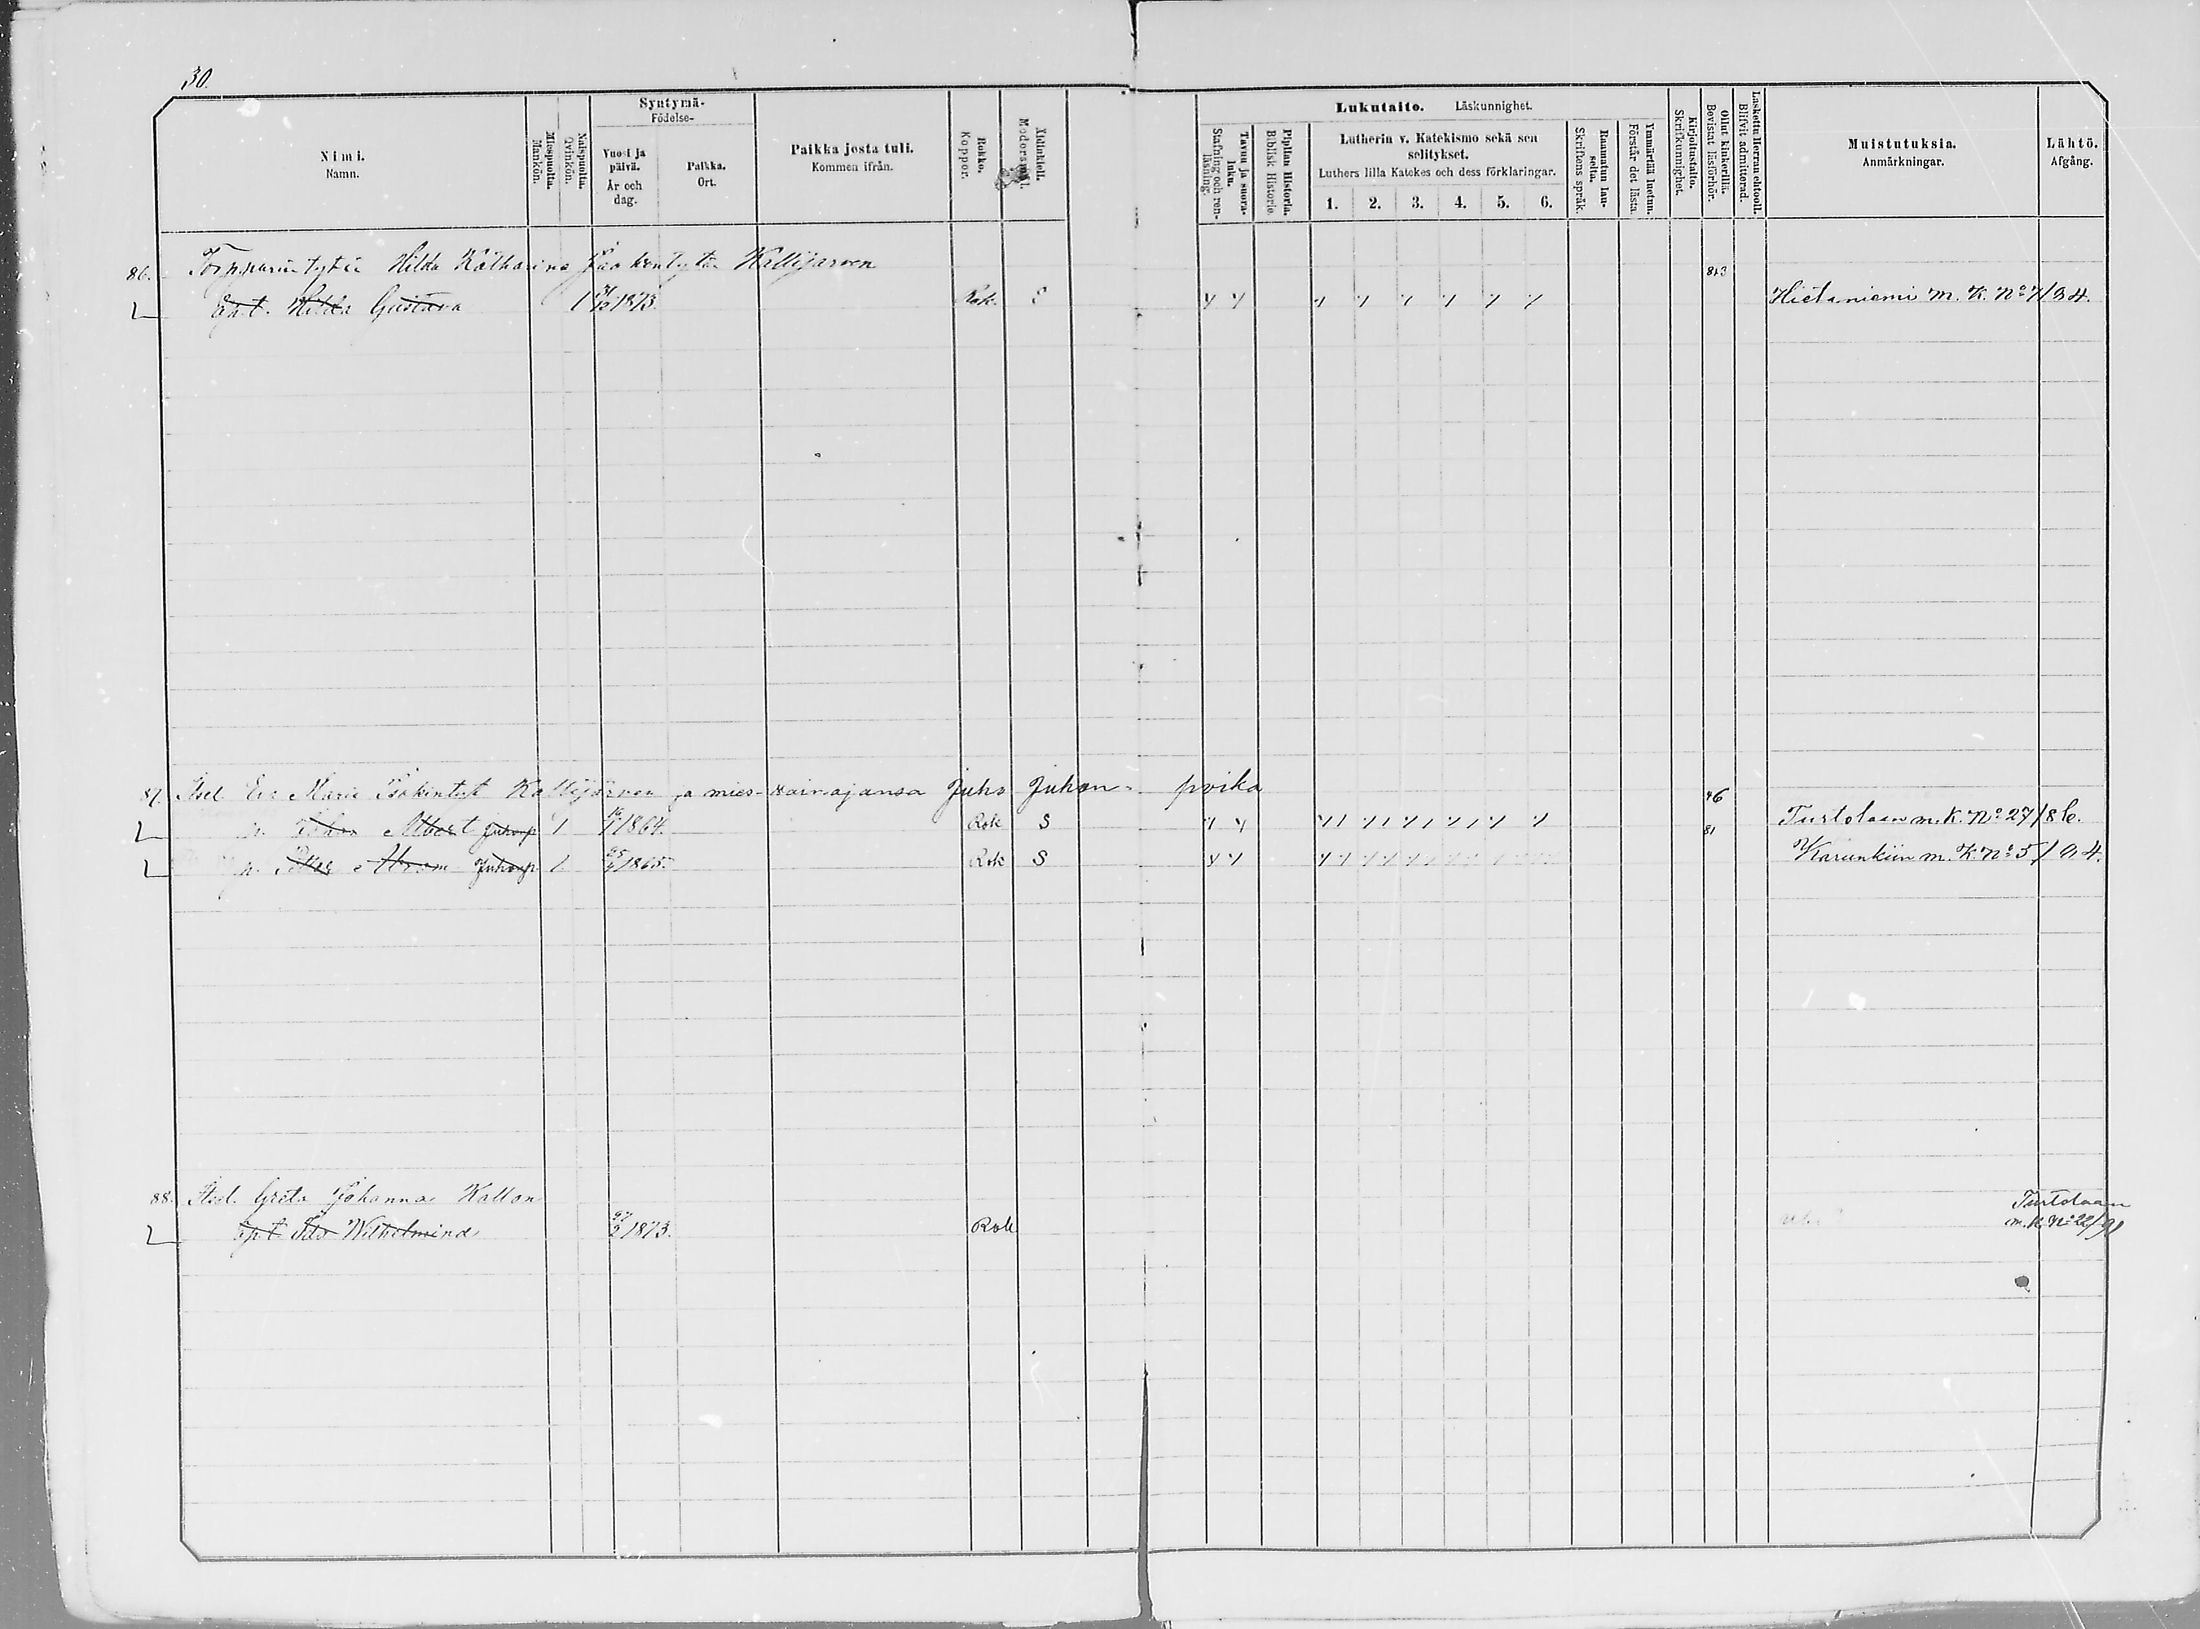 30.
Nimi.
Namn.
Miespuolta.
Mankön.
Naispuolta.
Qvinkön.
Syntymä-
Födelse-
Vuosi ja päivä.
År och dag.
Paikka.
Ort.
Paikka josta tuli.
Kommen ifrån.
Rokko.
Koppor.
Äidinkieli.
Modersmål.
Lukutaito. Läskunnighet.
Tavuu ja suora-luku.
Stafning och ren-läsning.
Piplian Historia.
Biblisk Historie.
Lutherin v. Katekismo sekä sen selitykset.
Luthers lilla Katekes och dess förklaringar.
1. 2. 3. 4. 5. 6.
Raamatun lau-seita.
Skriftens språk.
Ymmärtää luetun.
Förstår det lästa.
Kirjoitustaito.
Skrifkunnighet.
Ollut kinkerillä.
Bevistat läsförhör.
Laskettu Herran ehtooll.
Blifvit admitterad.
Muistutuksia.
Anmärkningar.
Lähtö.
Afgång.
86. Torpparin tytär Hilda Katharina Isakintytär Kallijärven 813
äp. t. Hilda Gustava 1 31/12 1873. Rok. S Hietaniemi m. K. No 7/94.
87. Itsel. Eva Maria Isakintyt Kallijärven ja mies- vainajansa Juho Juhon- poika 46
p. Johan Albert Juhonp 1 1864. Rok S 81 Turtolaan m. K. No 27/86.
p. Abram Juhonp 1 1865. Rok S Karunkiin m. K. No 5/94.
88. Itsel. Greta Johanna Kallon Turtolaan
äp. t. Ida Wilhelmina 27/2 1873. Rok m. K. No 22/91